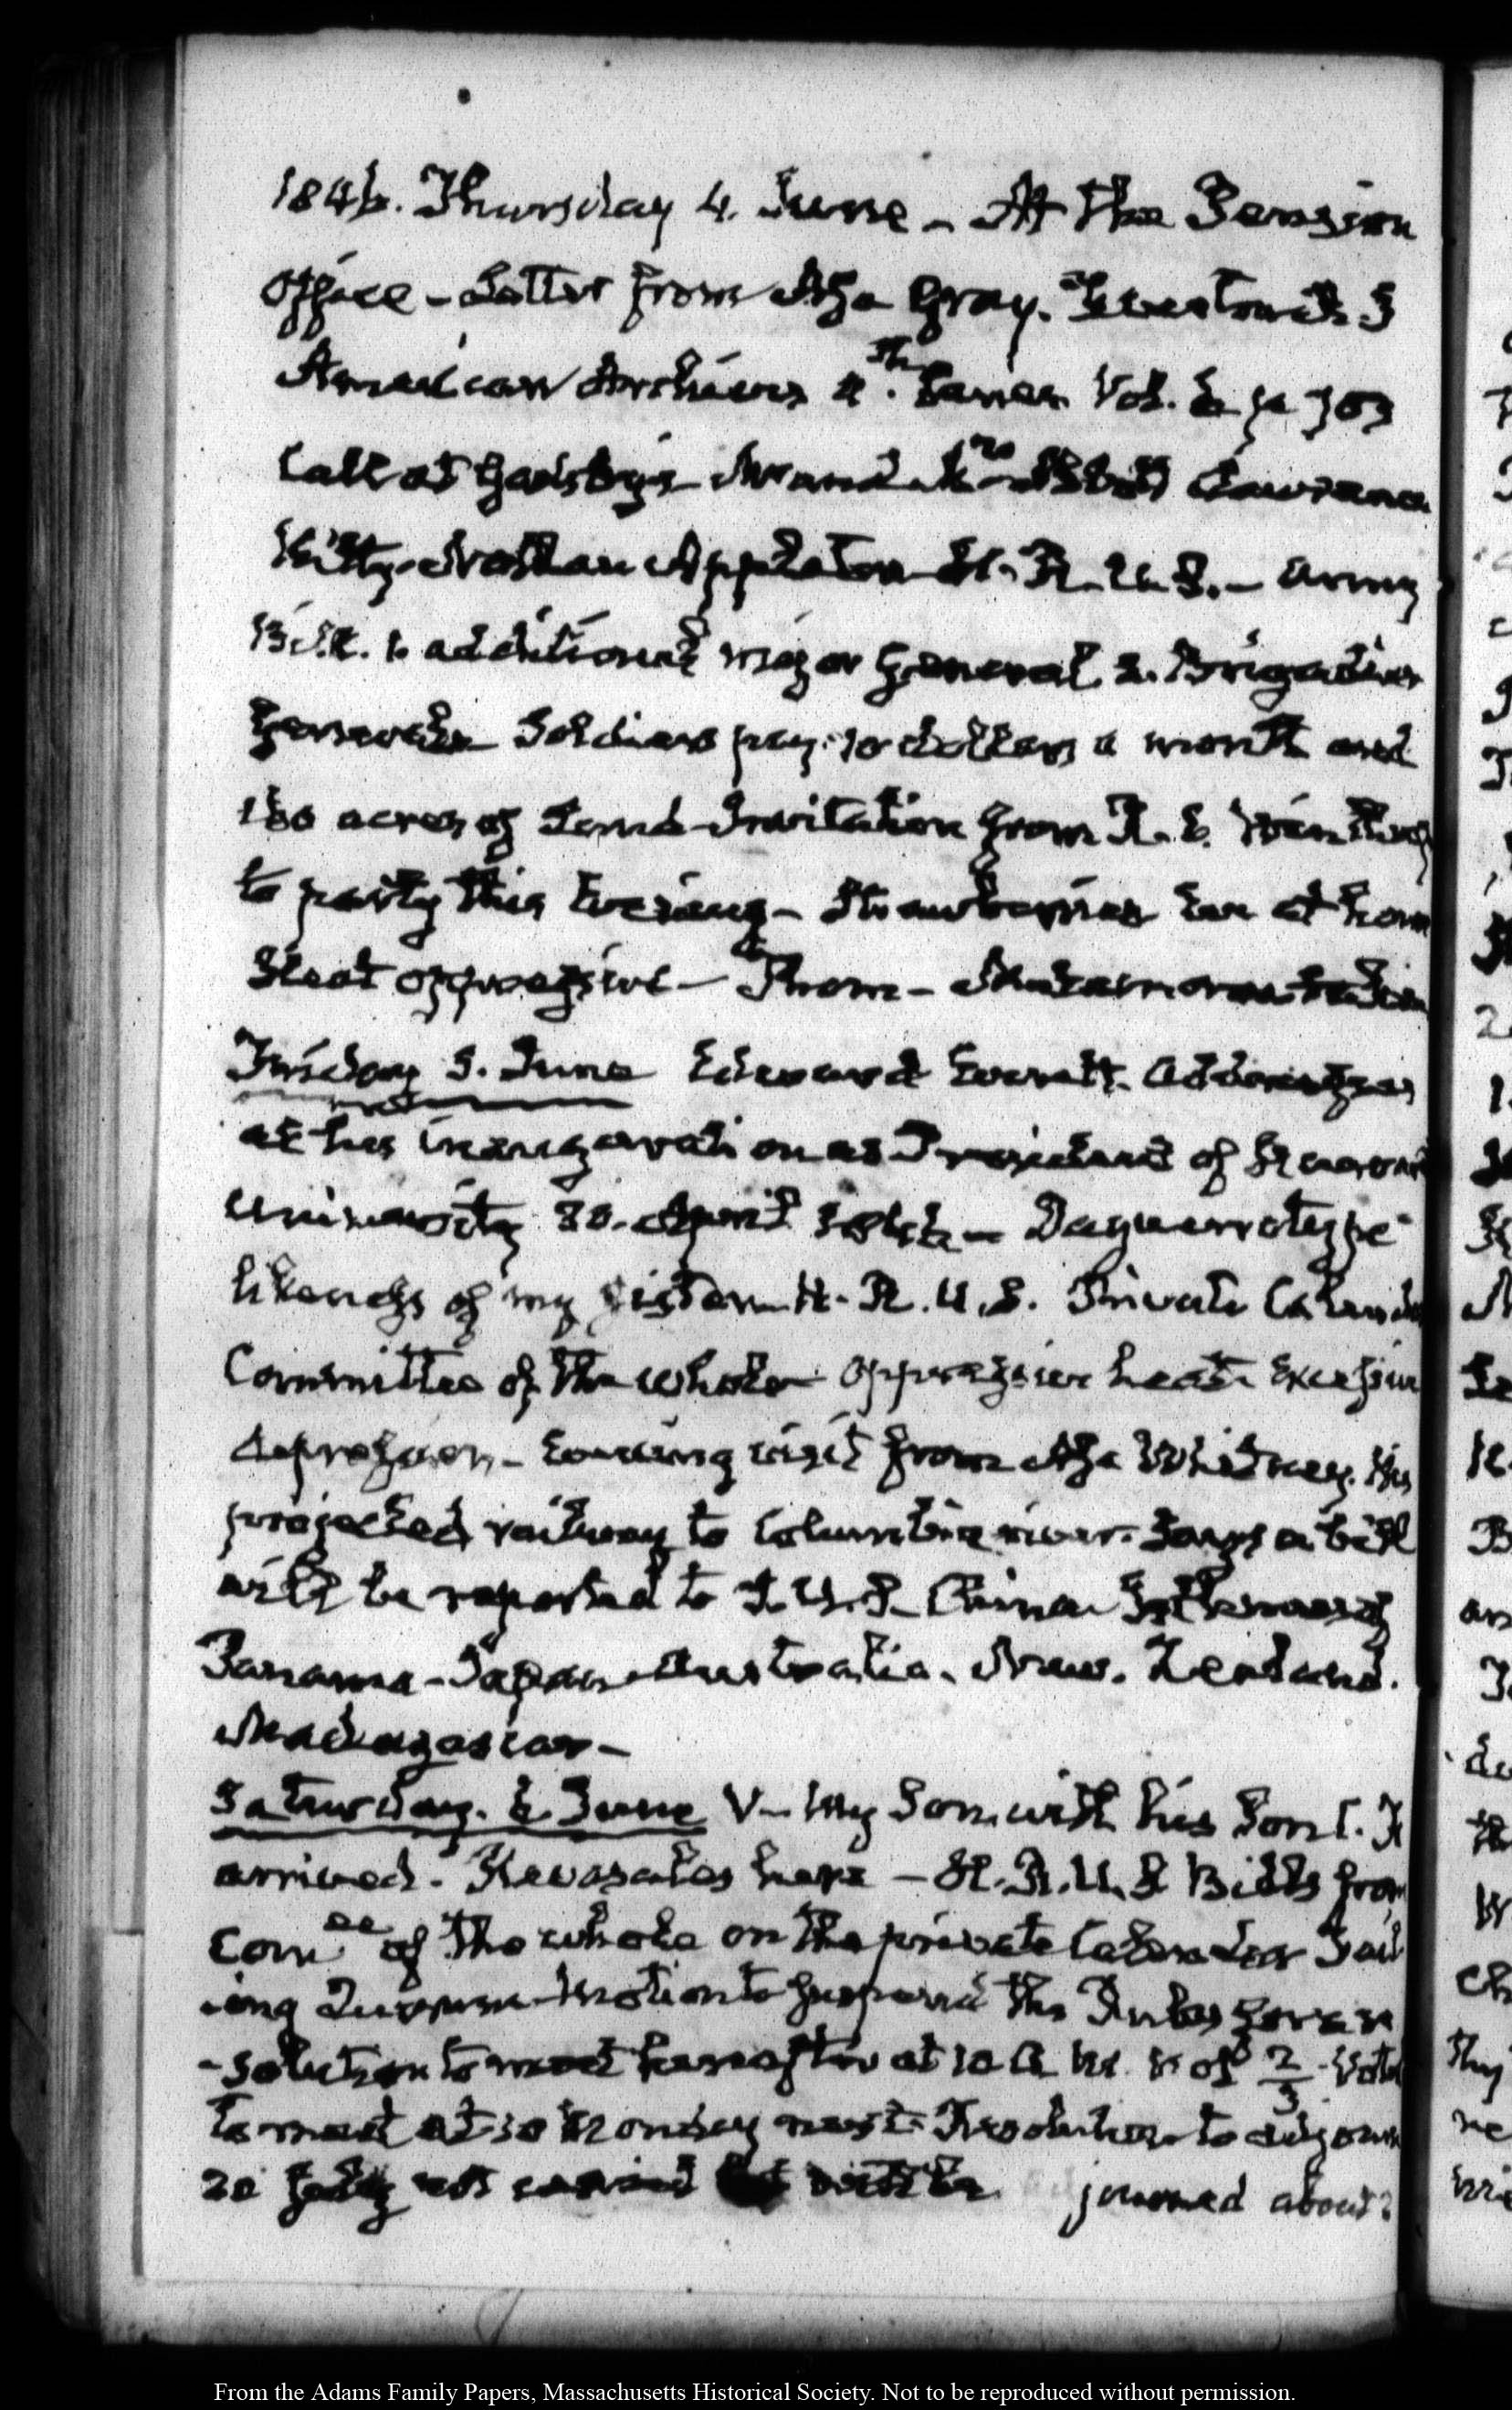 1846. Thursday 4. June – At the Pension
Office – Letter from Asa Gray.
American Archives 4.th Series Vol. 6 p 703
Call at Gadsby's – Mr and Mrs Abbott Lawrence
Kitty. Nathan Appleton – H. R. U. S. – Army
Bill. 1. additional major General 2. Brigadier
Generals Soldiers pay. 10 dollars a month and
160 acres of Land – Invitation from R. C. Winthrop
to party this Evening – Strawberries at home
Heat oppressive – Thom –
Friday 5. June Edward Everett. Addresses
at his inauguration as President of Harvard
University 30. April 1846 – Daguerrotype
likeness of my sister – H. R. U. S. Private Calendar
Committee of the whole oppressive heat Excessive
depression – Evening visit from Asa Whitney. His
projected railway to Columbia river. Says a bill
will be reported to S. U. S. – China Isthmus of
Panama – Japan – Australia. New. Zealand.
Madagascar –
Saturday. 6. June V – My Son with his Son J. Q
arrived. here – H. R. U. S Bills from
Comee of the whole on the private Calendar
motion to suspend the Rules for re
-solution to meet hereafter at 10 A. M. of 2/3 Vote
to meet at 10 Monday next – Resolution to adjourn
20 July not carried journed about 2
From the Adams Family Papers, Massachusetts Historical Society. Not to be reproduced without permission.